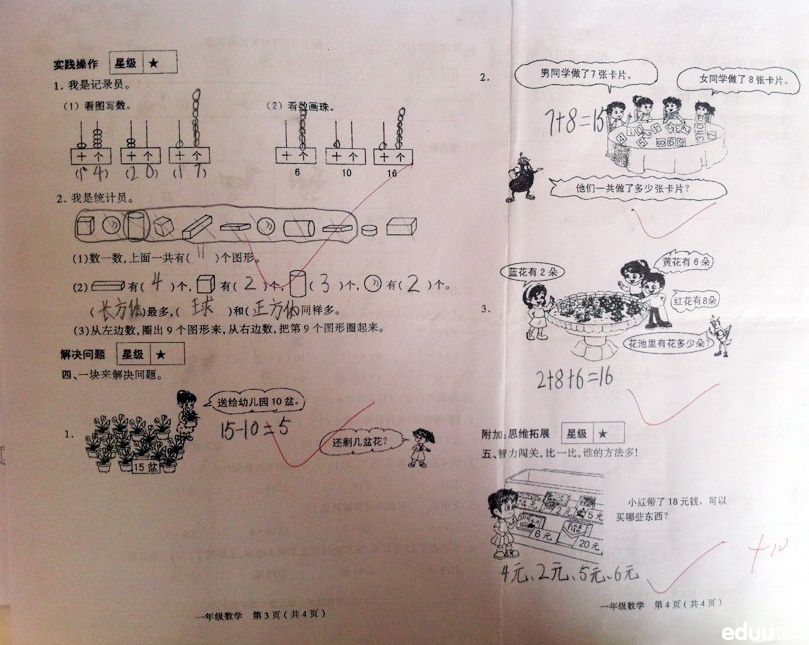 实践操作 星级 ★
1. 我是记录员。
(1) 看图写数。 (2) 看数画珠。
十 个 十 个 十 个 十 个 十 个 十 个
(14) (20) (17) 6 10 16
2. 我是统计员。
(1)数一数,上面一共有( 11 )个图形。
(2) 有( 4 )个, 有( 2 )个, ( 3 )个, 有( 2 )个。
(长方体)最多,( 球 )和(正方体)同样多。
(3)从左边数,圈出9个图形来,从右边数,把第9个图形圈起来。
解决问题 星级 ★
四、一块来解决问题。
送给幼儿园10盆。
15-10=5
1.
还剩几盆花?
15盆
一年级数学 第3页(共4页)
2.
男同学做了7张卡片。
女同学做了8张卡片。
7+8=15
他们一共做了多少张卡片?
蓝花有2朵
黄花有6朵
红花有8朵
3.
花池里有花多少朵?
2+8+6=16
附加:思维拓展 星级 ★
五、智力闯关,比一比,谁的方法多!
小红带了18元钱,可以
买哪些东西?
4元
5元
6元
20元
4元、2元、5元、6元
+10
一年级数学 第4页(共4页)
eduu